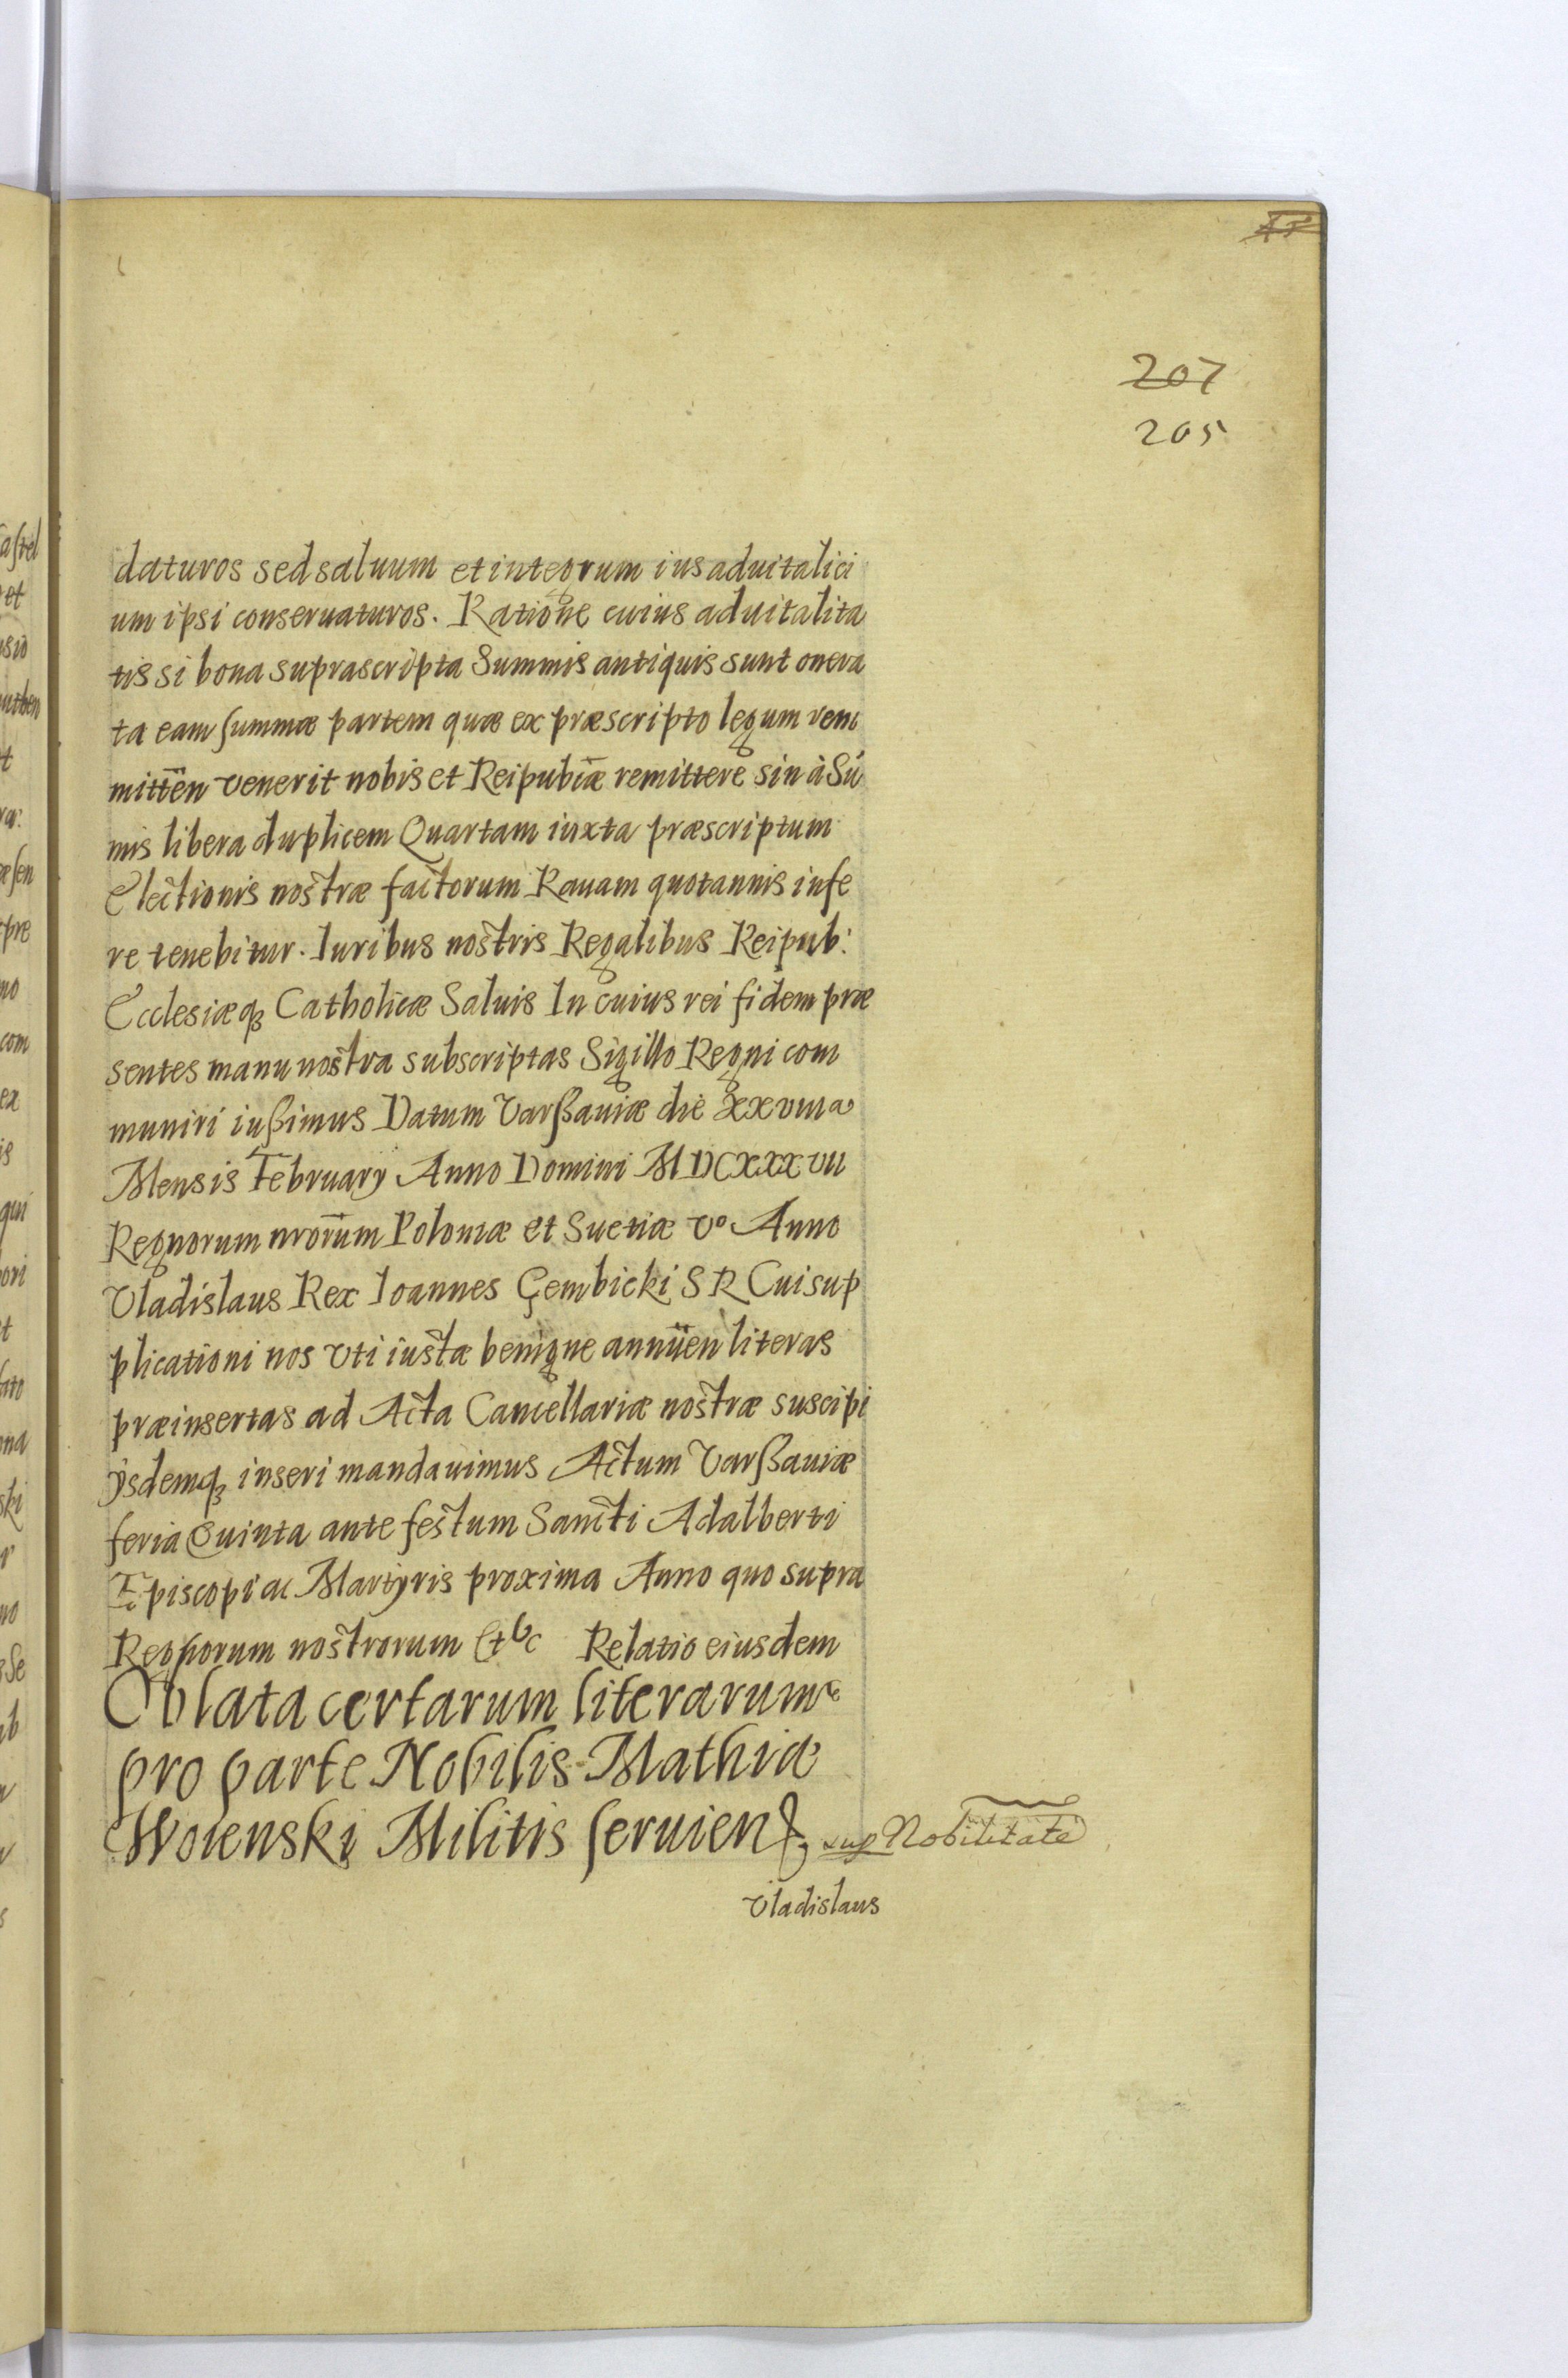 207
205
daturos sed saluum et integrum ius aduitalici
um ipsi conseruaturos. Ratione cuius aduitalita
tis si bona suprascripta Summis antiquis sunt onera
ta eam summæ partem quæ ex præscripto legum veni
mitten̄ venerit nobis et Reipub̄cæ remittere sin à Sū
mis libera duplicem Quartam iuxta præscriptum
Electionis nostræ factorum Rauam quotannis infe
re tenebitur. Iuribus nostris Regalibus Reipub:
Ecclesiæqꝫ Catholicæ Saluis In cuius rei fidem præ
sentes manu nostra subscriptas Sigillo Regni com
muniri iußimus Datum Varßauiæ die XXVIIIa
Mensis February Anno Domini MDCXXXVII
Regnorum nrōrum Poloniæ et Suetiæ Vo Anno
Vladislaus Rex Ioannes Gembicki S R Cui sup
plicationi nos vti iustæ benigne annuen̄ literas
præinsertas ad Acta Cancellariæ nostræ suscipi
ysdemqꝫ inseri mandauimus Actum Varßauiæ
feria Quinta ante festum Sancti Adalberti
Episcopi ac Martyris proxima Anno quo supra
Regnorum nostrorum Etc Relatio eiusdem
Oblata certarum literarum
pro parte Nobilis Mathiæ
Woienski Militis seruien
sup Nobilitate
Vladislaus